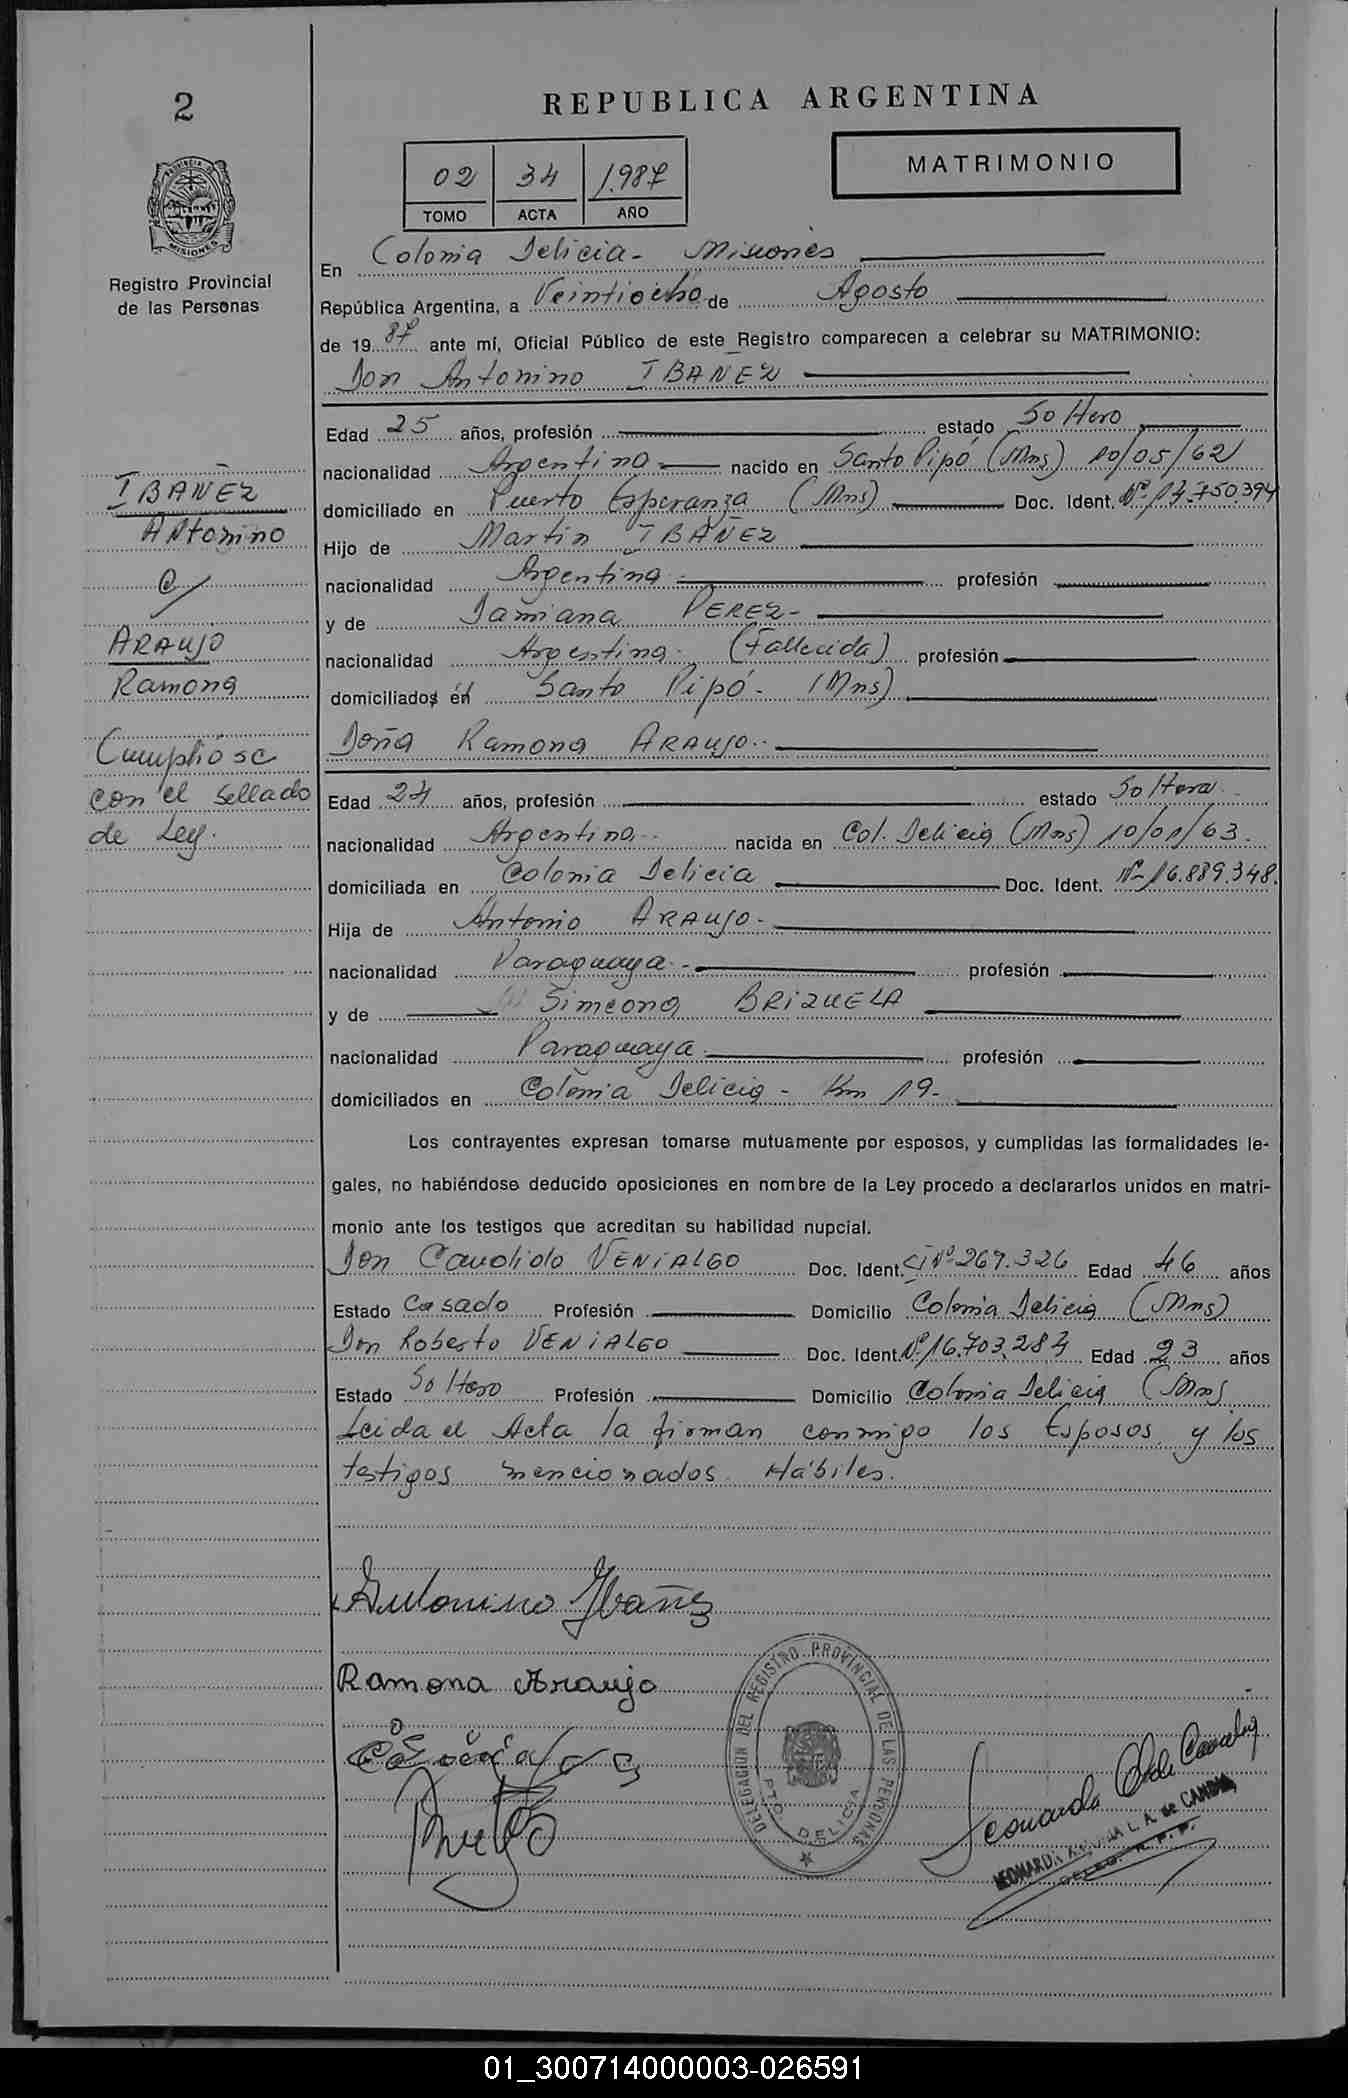 2
REPUBLICA ARGENTINA
MATRIMONIO
02 34 1.987
TOMO ACTA AÑO
PROVINCIA
MISIONES
Registro Provincial
de las Personas
En Colonia Delicia - Misiones
República Argentina, a Veintiocho de Agosto
de 1987 ante mí, Oficial Público de este Registro comparecen a celebrar su MATRIMONIO:
Don Antonino IBAÑEZ
Edad 25 años, profesión estado Soltero
nacionalidad Argentina nacido en Santo Pipó (Mns) 10/05/62
domiciliado en Puerto Esperanza (Mns) Doc. Ident. Nº 14.750.394
Hijo de Martin IBAÑEZ
nacionalidad Argentina profesión
y de Damiana PEREZ-
nacionalidad Argentina. (Fallecida) profesión
domiciliados en Santo Pipó- (Mns)
Doña Ramona ARAUJO.
Edad 24 años, profesión estado Soltera
nacionalidad Argentina nacida en Col. Delicia (Mns) 10/01/63.
domiciliada en Colonia Delicia Doc. Ident. Nº 16.889.348.
Hija de Antonio ARAUJO-
nacionalidad Paraguaya profesión
y de Simeona BRIZUELA
nacionalidad Paraguaya profesión
domiciliados en Colonia Delicia - Km 19-
IBAÑEZ
Antonino
c/
ARAUJO
Ramona
Cumplióse
con el sellado
de Ley.
Los contrayentes expresan tomarse mutuamente por esposos, y cumplidas las formalidades le-
gales, no habiéndose deducido oposiciones en nombre de la Ley procedo a declararlos unidos en matri-
monio ante los testigos que acreditan su habilidad nupcial.
Don Candido VENIALGO Doc. Ident. CI Nº 267.326 Edad 46 años
Estado Casado Profesión Domicilio Colonia Delicia (Mns)
Don Roberto VENIALGO Doc. Ident. Nº 16.703.284 Edad 23 años
Estado Soltero Profesión Domicilio Colonia Delicia (Mns)
Leida el Acta la firman conmigo los Esposos y los
testigos mencionados. Hábiles.
Antonino Ibañez
Ramona Araujo
DELEGACION DEL REGISTRO PROVINCIAL DE LAS PERSONAS
PTO. DELICIA
Leonarda
L. A. de CANDIA
DELEG. R. P. P.
01_300714000003-026591